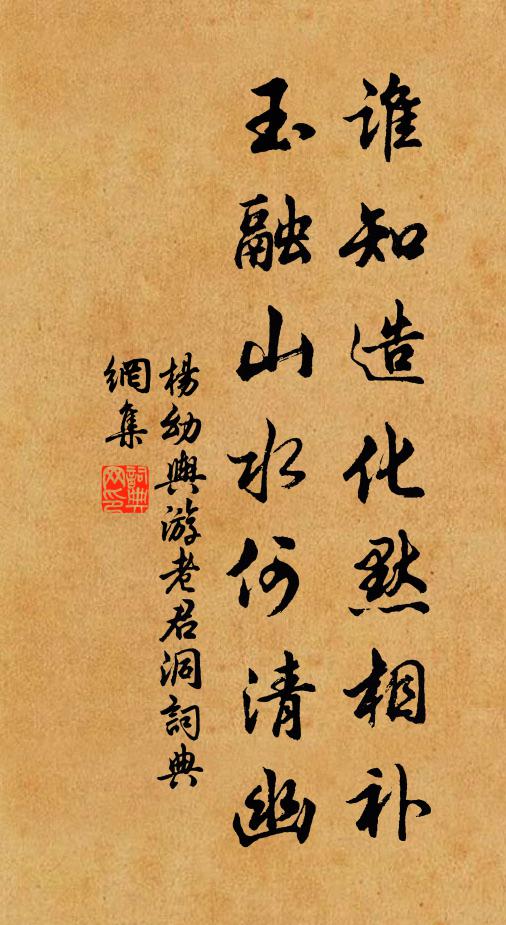 谁知造化默相补
玉融山水何清幽
楊幼輿游老君洞詞典
網集
詞典網印